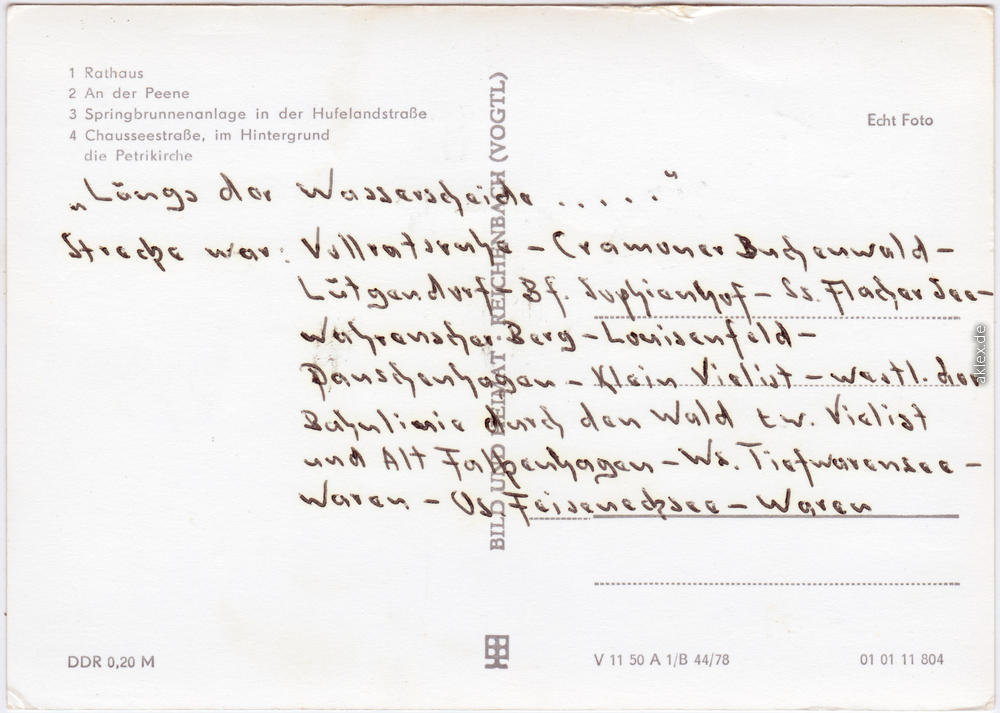 1 Rathaus
2 An der Peene
3 Springbrunnenanlage in der Hufelandstraße
4 Chausseestraße, im Hintergrund
die Petrikirche
Echt Foto
„Längs der Wasserscheide ....."
Strecke war: Vollratsruhe – Cramoner Buchenwald –
Lütgendorf – Bf. Sophienhof – Ss. Flacher See –
Wahrenscher Berg – Louisenfeld –
Panschenhagen – Klein Vielist – westl. der
Bahnlinie durch den Wald zw. Vielist
und Alt Falkenhagen – Ws. Tiefwarensee –
Waren – Os. Feisenecksee – Waren
BILD UND HEIMAT REICHENBACH (VOGTL)
DDR 0,20 M
V 11 50 A 1/B 44/78
01 01 11 804
aklex.de